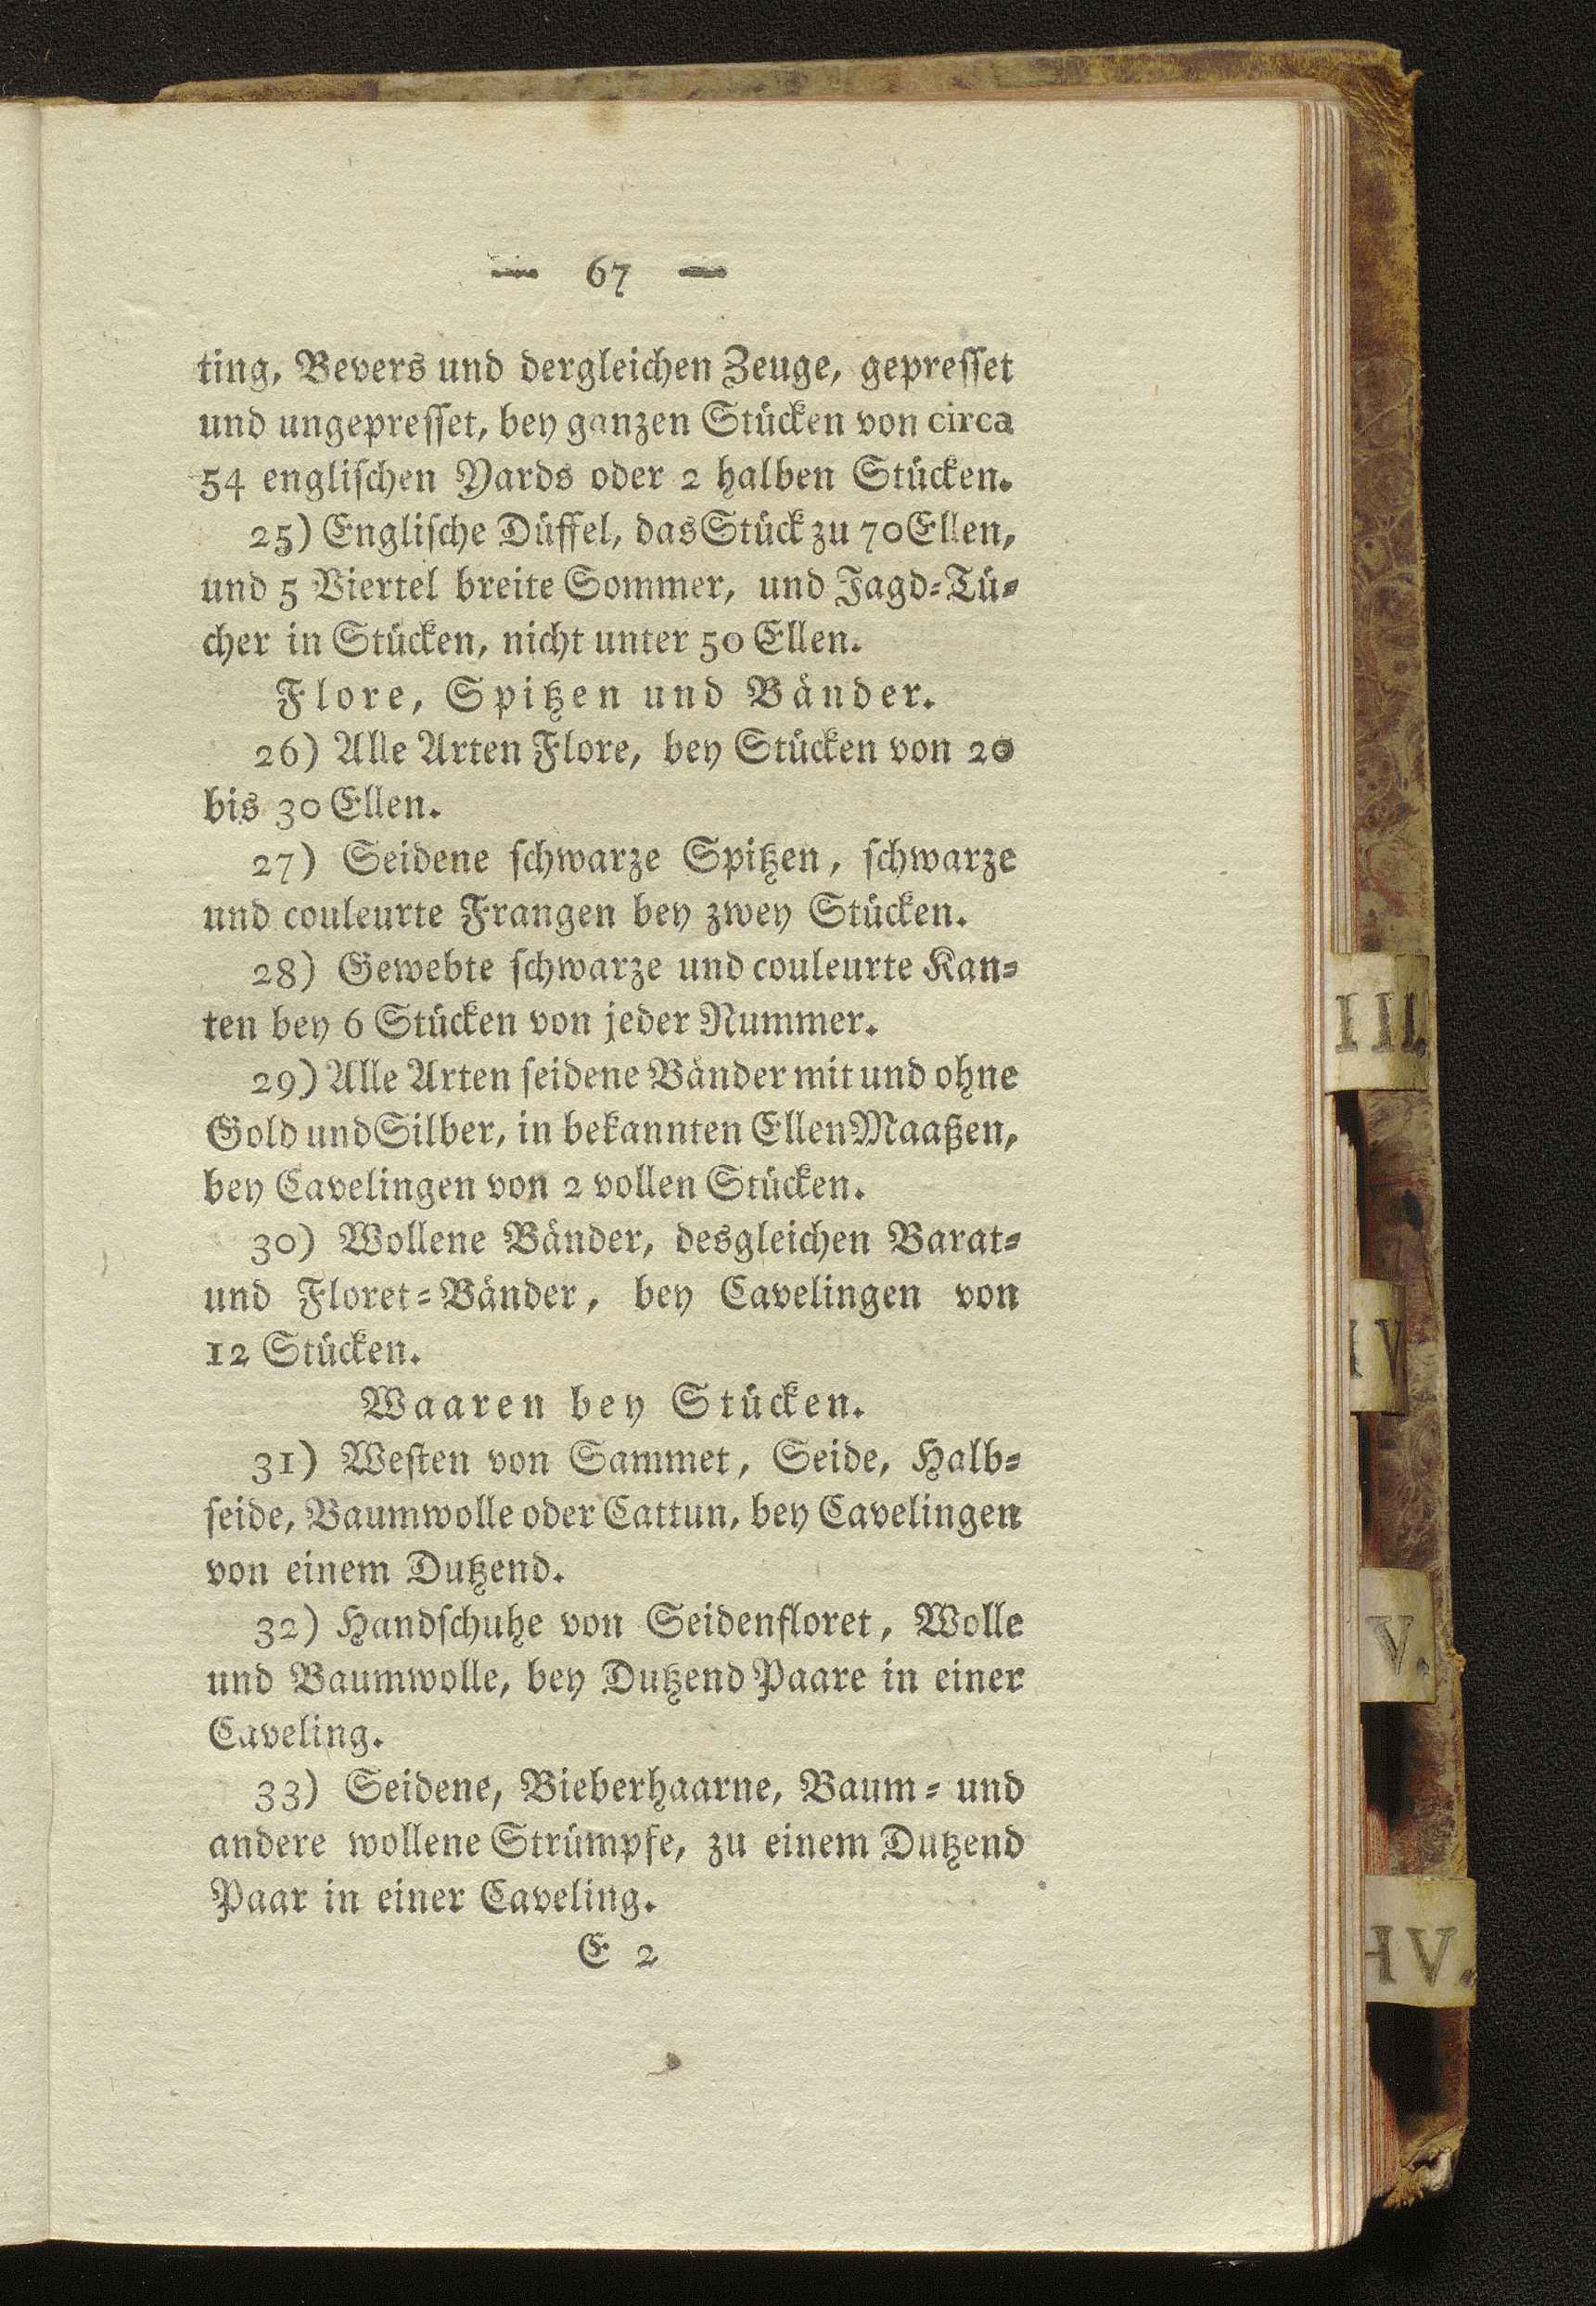 — 67 —
ting, Bevers und dergleichen Zeuge, gepresset
und ungepresset, bey ganzen Stücken von circa
54 englischen Yards oder 2 halben Stücken.
25) Englische Düffel, das Stück zu 70 Ellen,
und 5 Viertel breite Sommer, und Jagd-Tü-
cher in Stücken, nicht unter 50 Ellen.
Flore, Spitzen und Bänder.
26) Alle Arten Flore, bey Stücken von 20
bis 30 Ellen.
27) Seidene schwarze Spitzen, schwarze
und couleurte Frangen bey zwey Stücken.
28) Gewebte schwarze und couleurte Kan-
ten bey 6 Stücken von jeder Nummer.
29) Alle Arten seidene Bänder mit und ohne
Gold und Silber, in bekannten Ellen Maaßen,
bey Cavelingen von 2 vollen Stücken.
30) Wollene Bänder, desgleichen Barat-
und Floret-Bänder, bey Cavelingen von
12 Stücken.
Waaren bey Stücken.
31) Westen von Sammet, Seide, Halb-
seide, Baumwolle oder Cattun, bey Cavelingen
von einem Dutzend.
32) Handschuhe von Seidenfloret, Wolle
und Baumwolle, bey Dutzend Paare in einer
Caveling.
33) Seidene, Bieberhaarne, Baum- und
andere wollene Strümpfe, zu einem Dutzend
Paar in einer Caveling.
E 2
III.
IV
V.